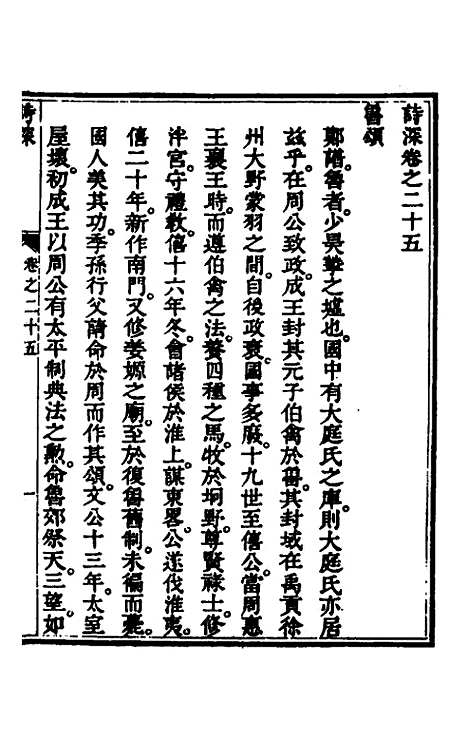 詩深卷之二十五
魯頌
鄭譜魯者少昊摯之墟也。國中有大庭氏之庫則大庭氏亦居
茲乎。在周公致政成王封其元子伯禽於魯其封域在禹貢徐
州大野蒙羽之間。自後政衰國事多廢。十九世至僖公當周惠
王襄王時而遵伯禽之法。養四種之馬。牧於坰野尊賢祿士修
泮宮。守禮教。僖十六年冬。會諸侯於淮上。謀東畧。公遂伐淮夷。
僖二十年。新作南門。又修姜嫄之廟。至於復魯舊制未徧而薨。
國人美其功。季孫行父請命於周而作其頌。文公十三年。太室
屋壞。初成王以周公有太平制典法之勲。命魯郊祭天三望如
詩深
卷之二十五
一